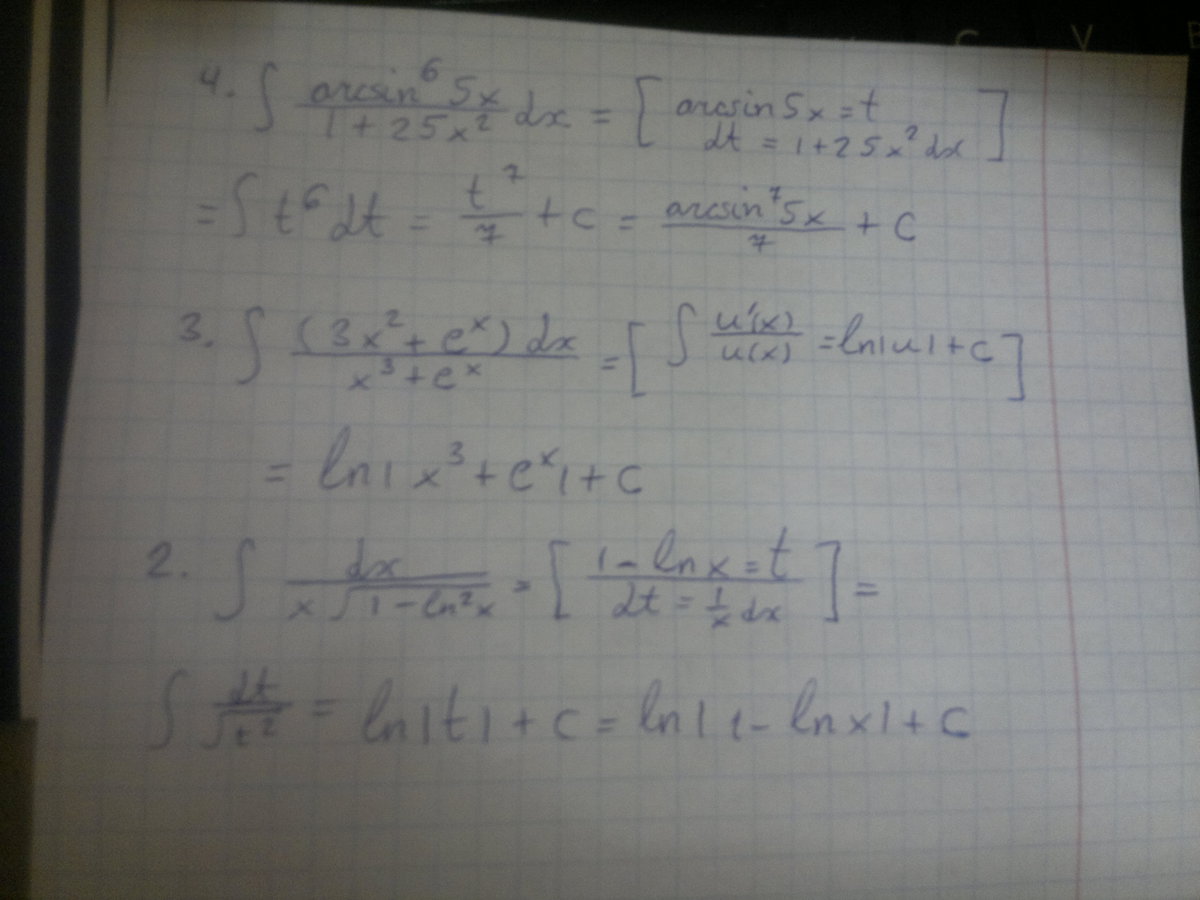 4. ∫ arcsin⁶5x / 1 + 25x² dx = [ arcsin5x = t
dt = 1+25x²dx ]
= ∫ t⁶dt = t⁷/7 + c = arcsin⁷5x/7 + C
3. ∫ (3x² + eˣ) dx / x³ + eˣ = [ ∫ u'(x)/u(x) = ln|u| + c ]
= ln| x³ + eˣ| + C
2. ∫ dx / x √1 - ln²x = [ 1 - ln x = t / dt = 1/x dx ] =
∫ dt/√t² = ln|t| + C = ln| 1 - ln x| + C
C V